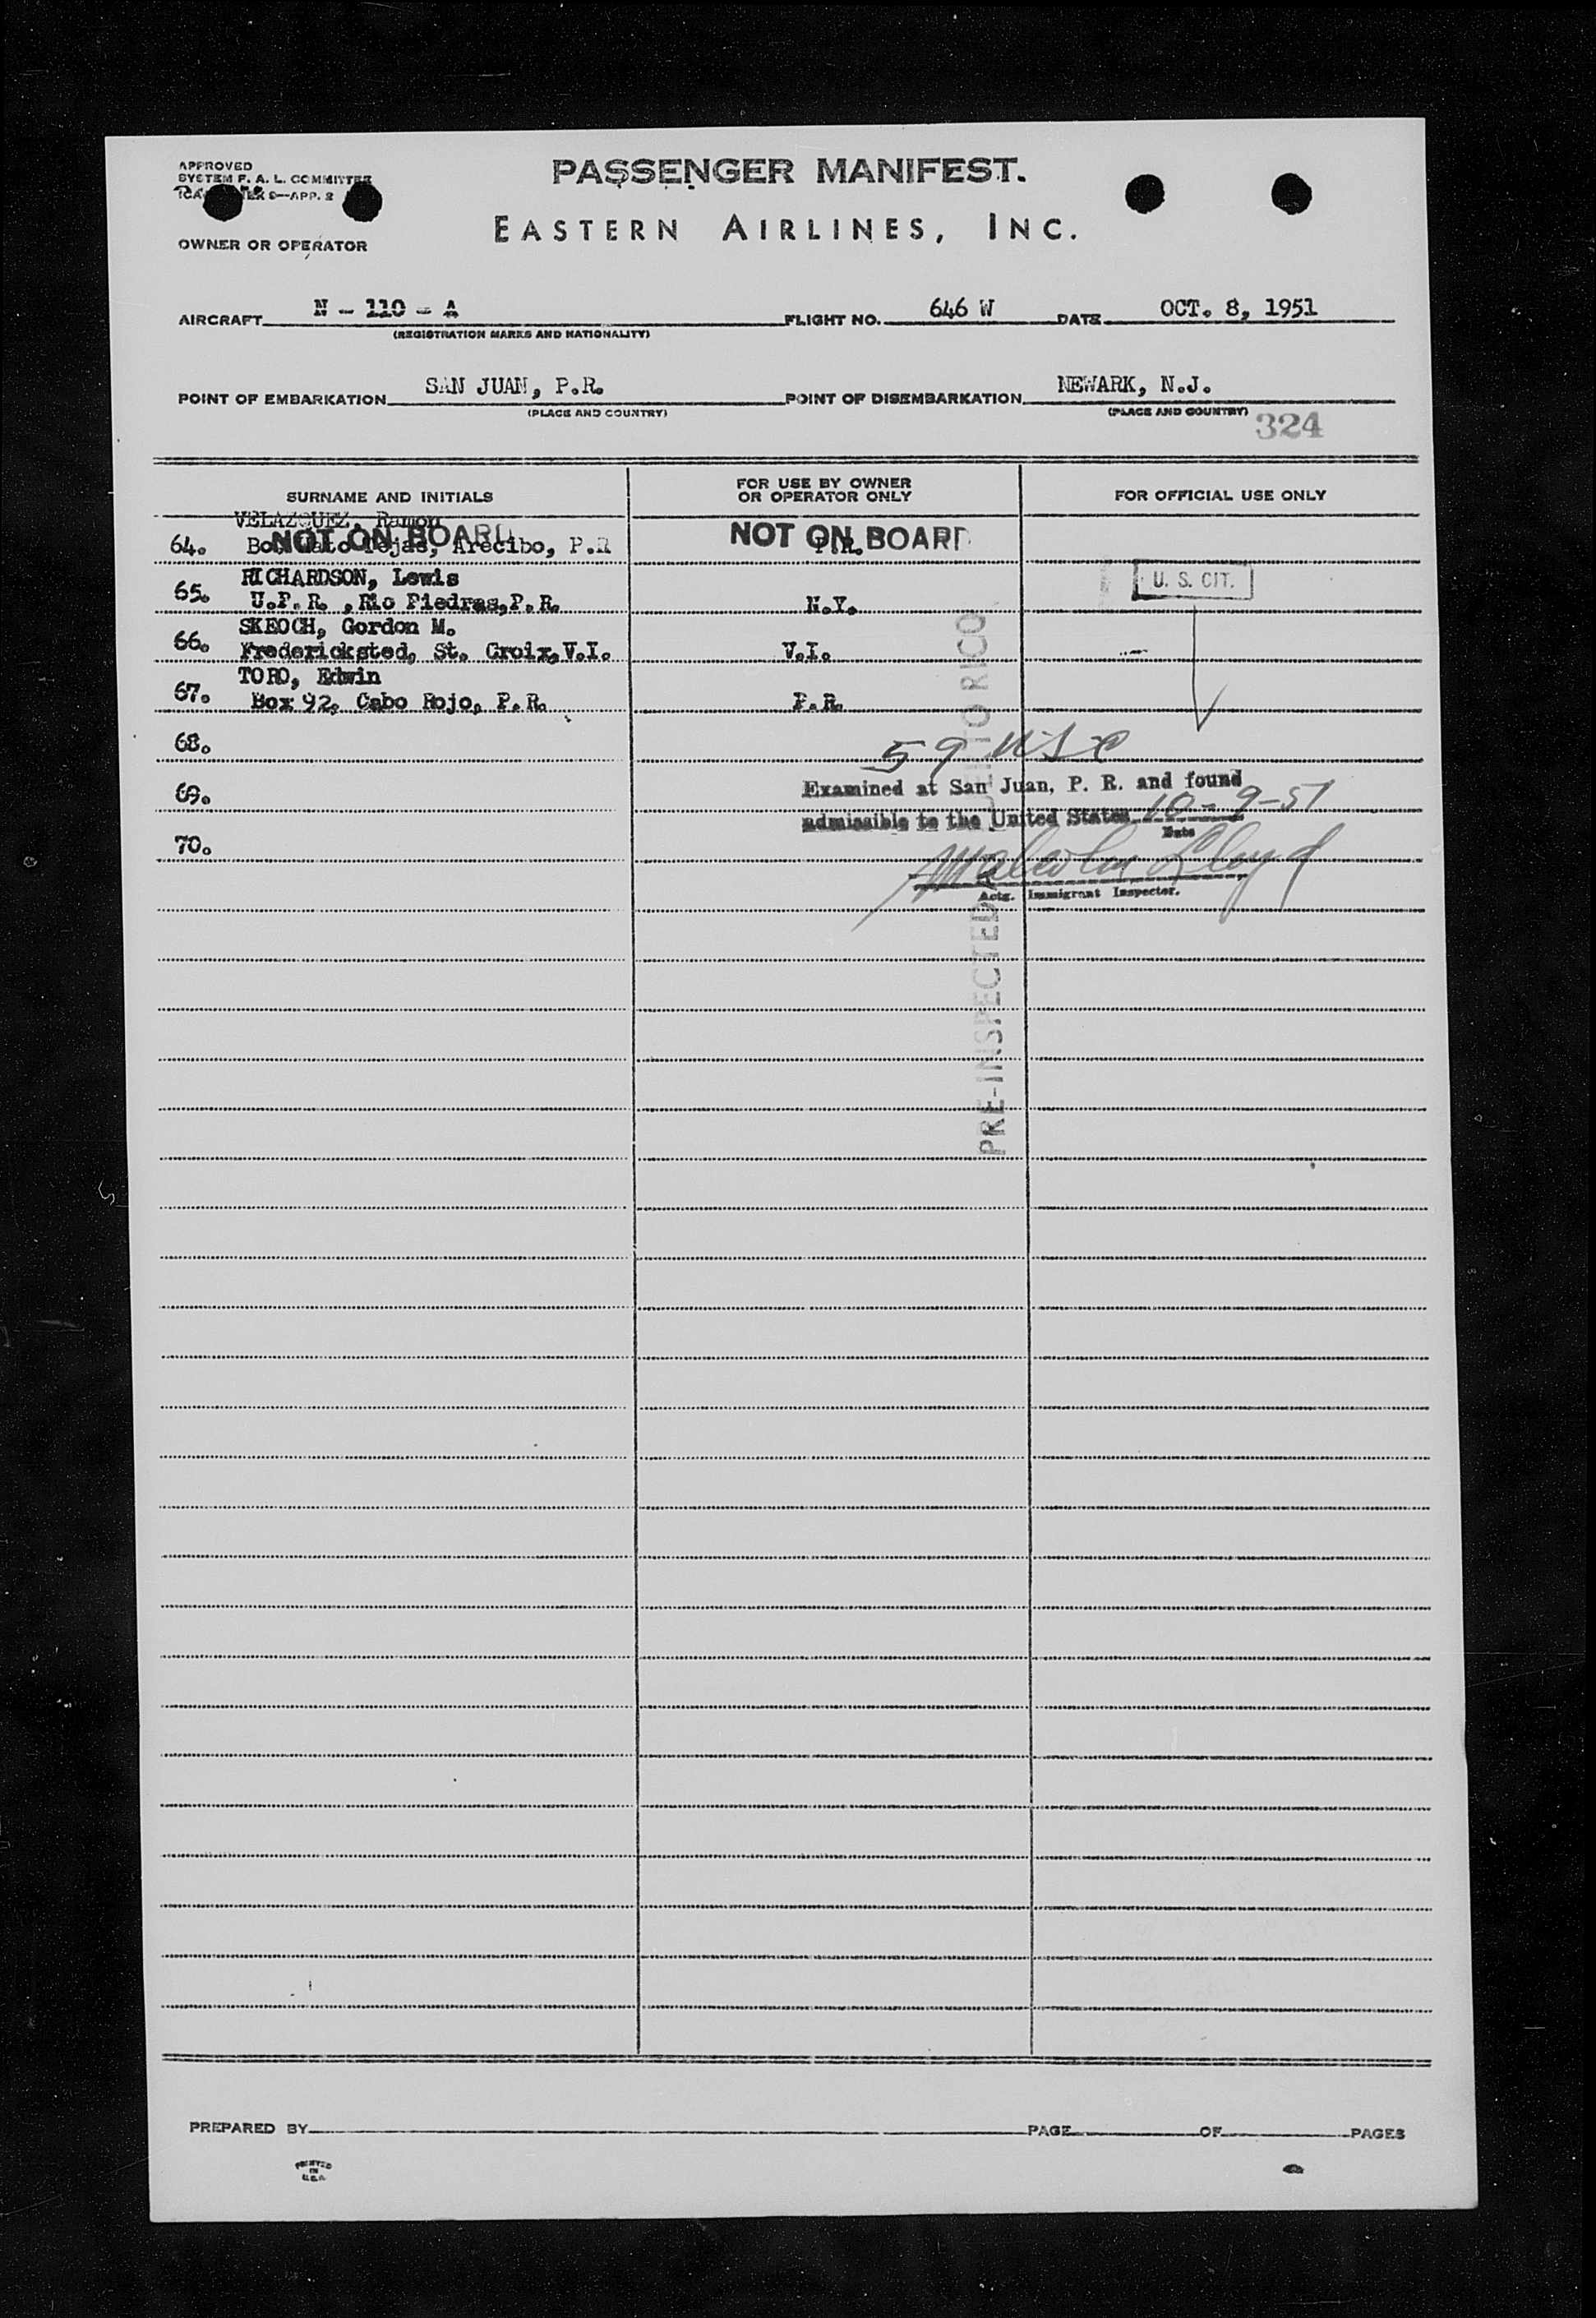 APPROVED
SYSTEM F. A. L. COMMITTEE
APP. 2
PASSENGER MANIFEST.
EASTERN AIRLINES, INC.
OWNER OR OPERATOR
AIRCRAFT N - 110 - A FLIGHT NO. 646 W DATE OCT. 8, 1951
(REGISTRATION MARKS AND NATIONALITY)
POINT OF EMBARKATION SAN JUAN, P.R. POINT OF DISEMBARKATION NEWARK, N.J.
(PLACE AND COUNTRY) (PLACE AND COUNTRY)
324
SURNAME AND INITIALS FOR USE BY OWNER OR OPERATOR ONLY FOR OFFICIAL USE ONLY
VELAZQUEZ, Ramon
NOT ON BOARD NOT ON BOARD
64. Arecibo, P.R P.R.
RICHARDSON, Lewis U. S. CIT.
65. U.P.R. ,Rio Piedras,P.R. N.Y.
SKEOCH, Gordon M.
66. Fredericksted, St. Croix,V.I. V.I.
TORO, Edwin
67. Box 92, Cabo Rojo, P.R. P.R.
68. 59 USC
69. Examined at San Juan, P. R. and found
admissible to the United States 10-9-51
Date
70. Malcolm Lloyd
Actg. Immigrant Inspector.
PRE-INSPECTED PUERTO RICO
PREPARED BY PAGE OF PAGES
PRINTED
IN
U.S.A.